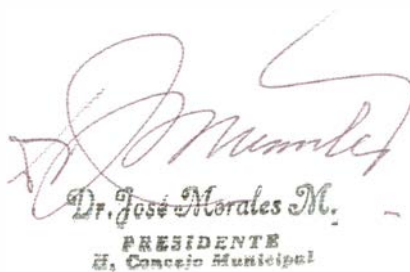 Dr. José Morales M.
PRESIDENTE
H. Concejo Municipal